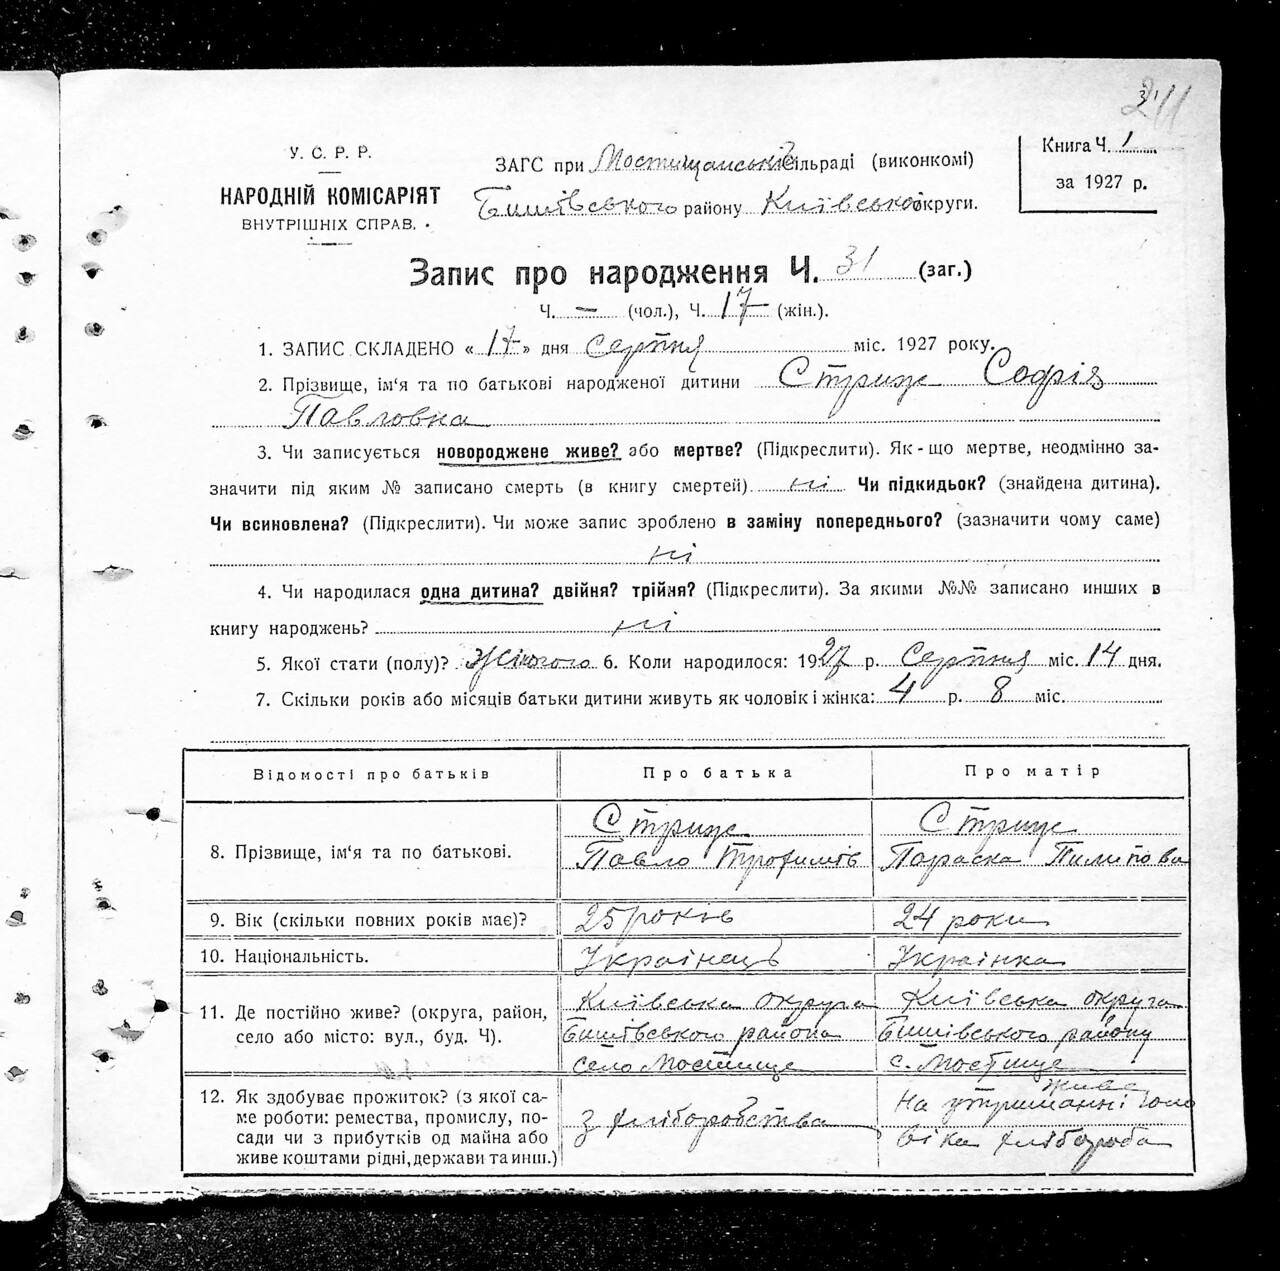 211
У. С. Р. Р.
НАРОДНІЙ КОМІСАРІЯТ
ВНУТРІШНІХ СПРАВ.
ЗАГС при Мостищанській сільраді (виконкомі)
Бишівського району Київської округи.
Книга Ч. 1
за 1927 р.
Запис про народження Ч. 31 (заг.)
Ч. — (чол.), Ч. 17 (жін.).
1. ЗАПИС СКЛАДЕНО « 17 » дня Серпня міс. 1927 року.
2. Прізвище, ім'я та по батькові народженої дитини Стриж Софія
Павловна
3. Чи записується новороджене живе? або мертве? (Підкреслити). Як-що мертве, неодмінно за-
значити під яким № записано смерть (в книгу смертей) ні Чи підкидьок? (знайдена дитина).
Чи всиновлена? (Підкреслити). Чи може запис зроблено в заміну попереднього? (зазначити чому саме)
ні
4. Чи народилася одна дитина? двійня? трійня? (Підкреслити). За якими №№ записано инших в
книгу народжень? ні
5. Якої стати (полу)? Жіночого 6. Коли народилося: 1927 р. Серпня міс. 14 дня.
7. Скільки років або місяців батьки дитини живуть як чоловік і жінка: 4 р. 8 міс.
Відомості про батьків Про батька Про матір
8. Прізвище, ім'я та по батькові.
Стриж
Павло Трохимів
Стриж
Параска Пилипова
9. Вік (скільки повних років має)? 25 років 24 роки
10. Національність. Українець Українка
11. Де постійно живе? (округа, район,
село або місто: вул., буд. Ч).
Київська округа
Бишівського района
село Мостище
Київська округа
Бишівського району
с. Мостище
12. Як здобуває прожиток? (з якої са-
ме роботи: ремества, промислу, по-
сади чи з прибутків од майна або
живе коштами рідні, держави та инш.)
з хліборобства
живе
На утриманні чоло
віка хлібороба